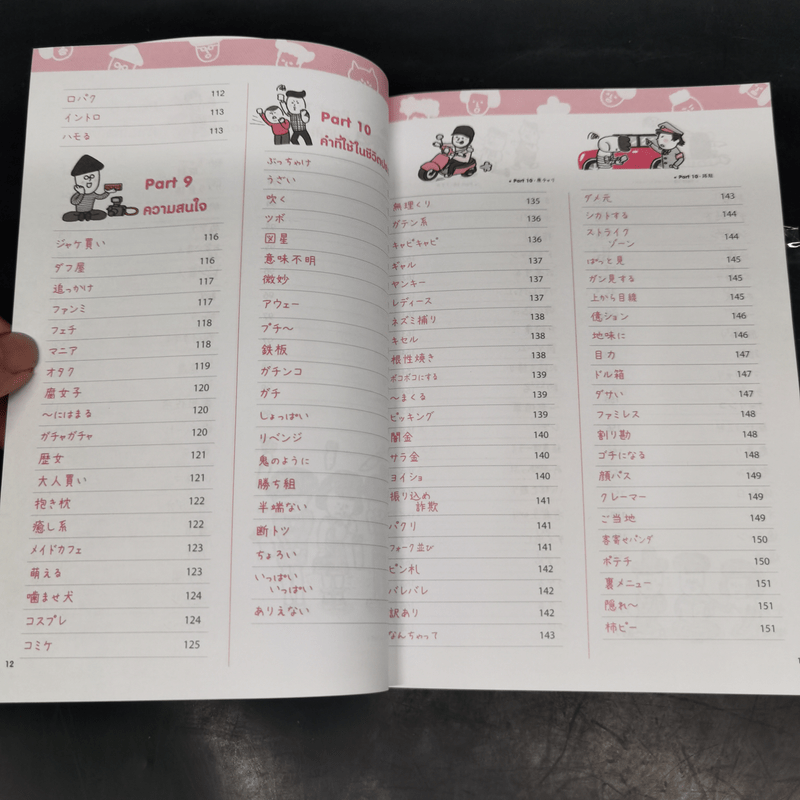 口パク 112
イントロ 113
ハモる 113
Part 9
ความสนใจ
ジャケ買い 116
ダフ屋 116
追っかけ 117
ファンミ 117
フェチ 118
マニア 118
オタク 119
腐女子 120
〜にはまる 120
ガチャガチャ 120
歴女 121
大人買い 121
抱き枕 122
癒し系 122
メイドカフェ 123
萌える 123
噛ませ犬 124
コスプレ 124
コミケ 125
12
Part 10
คำที่ใช้ใน
ぶっちゃけ
うざい
吹く
ツボ
図星
意味不明
微妙
アウェー
プチ〜
鉄板
ガチンコ
ガチ
しょっぱい
リベンジ
鬼のように
勝ち組
半端ない
断トツ
ちょろい
いっぱい
いっぱい
ありえない
Part 10
無理くり 135
ガテン系 136
キャピキャピ 136
ギャル 137
ヤンキー 137
レディース 137
ネズミ捕り 138
キセル 138
根性焼き 138
ボコボコにする 139
〜まくる 139
ピッキング 139
闇金 140
サラ金 140
ヨイショ 140
振り込め
詐欺 141
パクリ 141
フォーク並び 141
ピン札 142
バレバレ 142
訳あり 142
なんちゃって 143
Part 10
ダメ元 143
シカトする 144
ストライク
ゾーン 144
ぱっと見 145
ガン見する 145
上から目線 145
億ション 146
地味に 146
目力 147
ドル箱 147
ダサい 147
ファミレス 148
割り勘 148
ゴチになる 148
顔パス 149
クレーマー 149
ご当地 149
客寄せパンダ 150
ポテチ 150
裏メニュー 151
隠れ〜 151
柿ピー 151